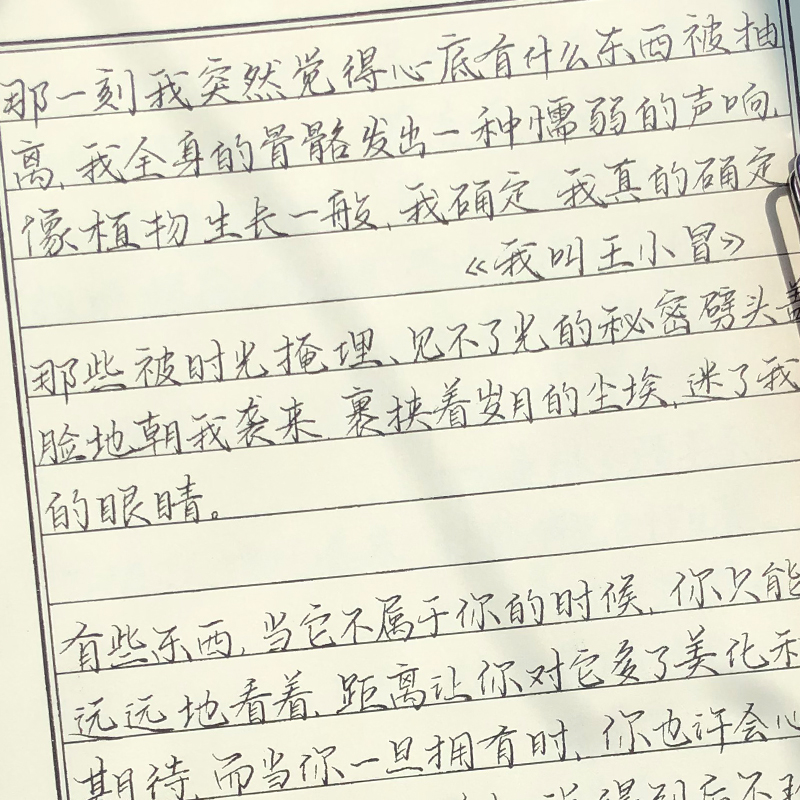 那一刻我突然觉得心底有什么东西被抽
离,我全身的骨骼发出一种懦弱的声响,
像植物生长一般,我确定 我真的确定
《我叫王小冒》
那些被时光掩埋、见不了光的秘密劈头盖
脸地朝我袭来,裹挟着岁月的尘埃,迷了我
的眼睛。
有些东西,当它不属于你的时候,你只能
远远地看着,距离让你对它多了美化和
期待,而当你一旦拥有时,你也许会心
得到后不